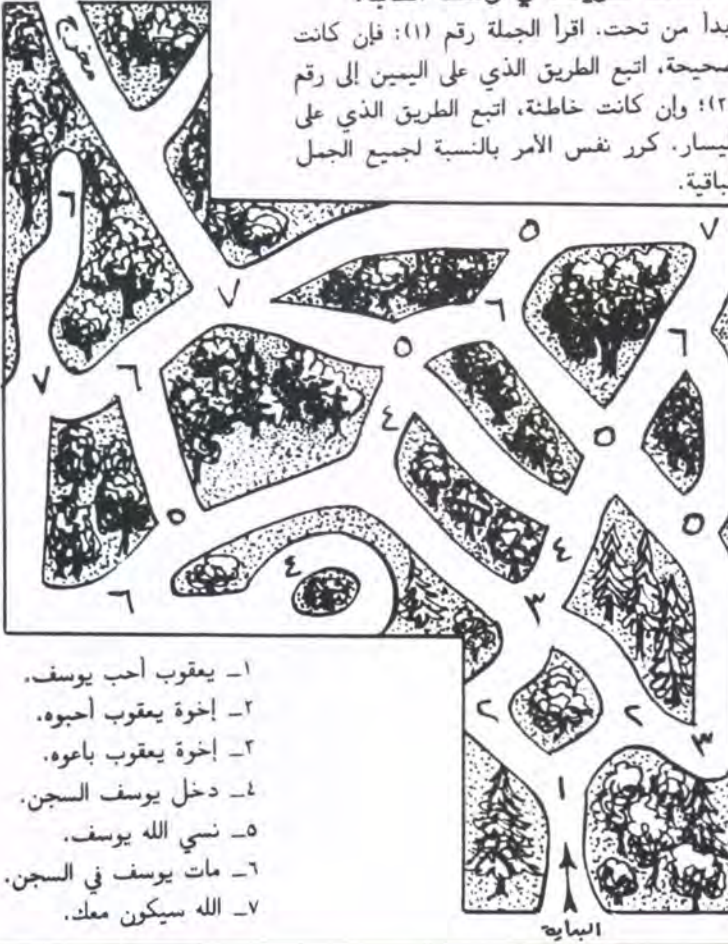 بدأ من تحت. اقرأ الجملة رقم (١): فإن كانت
صحيحة، اتبع الطريق الذي على اليمين إلى رقم
٢)؛ وإن كانت خاطئة، اتبع الطريق الذي على
يسار. كرر نفس الأمر بالنسبة لجميع الجمل
باقية.
مخرج
٦
٧ ٥
٦ ٦ ٧
٥ ٦ ٧
٥ ٤
٥ ٥
٤ ٤ ٦
٣
٢ ٢
٣
١
١ــ يعقوب أحب يوسف.
٢ــ إخوة يعقوب أحبوه.
٣ــ إخوة يعقوب باعوه.
٤ــ دخل يوسف السجن.
٥ــ نسي الله يوسف.
٦ــ مات يوسف في السجن.
٧ــ الله سيكون معك.
البداية